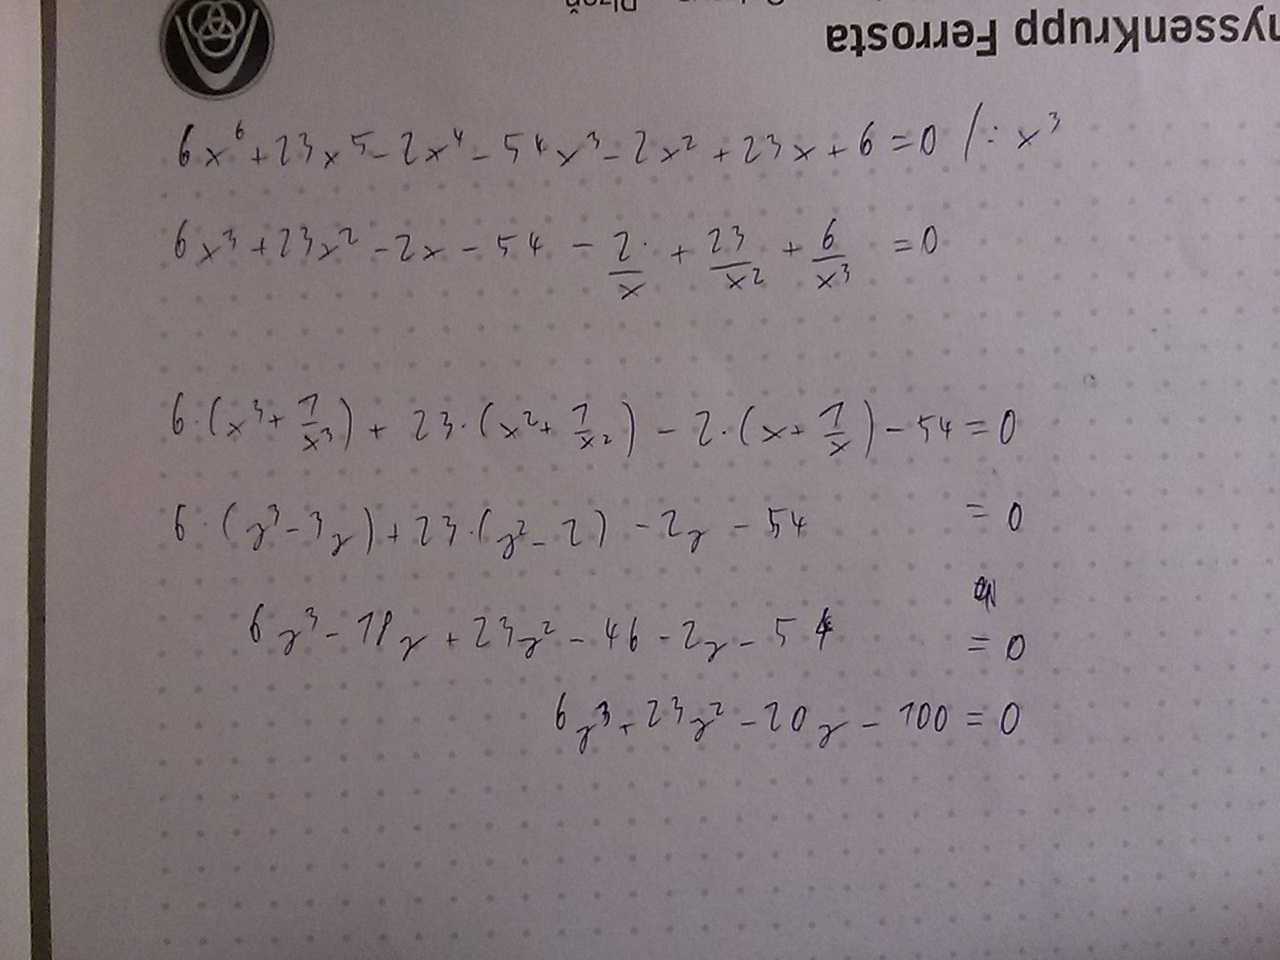 nyssenKrupp Ferrosta
6x⁶+23x⁵-2x⁴-54x³-2x²+23x+6=0 /: x³
6x³+23x²-2x-54-2/x+23/x²+6/x³=0
6·(x³+1/x³)+23·(x²+1/x²)-2·(x+1/x)-54=0
6·(y³-3y)+23·(y²-2)-2y-54=0
6y³-18y+23y²-46-2y-54=0
6y³+23y²-20y-100=0